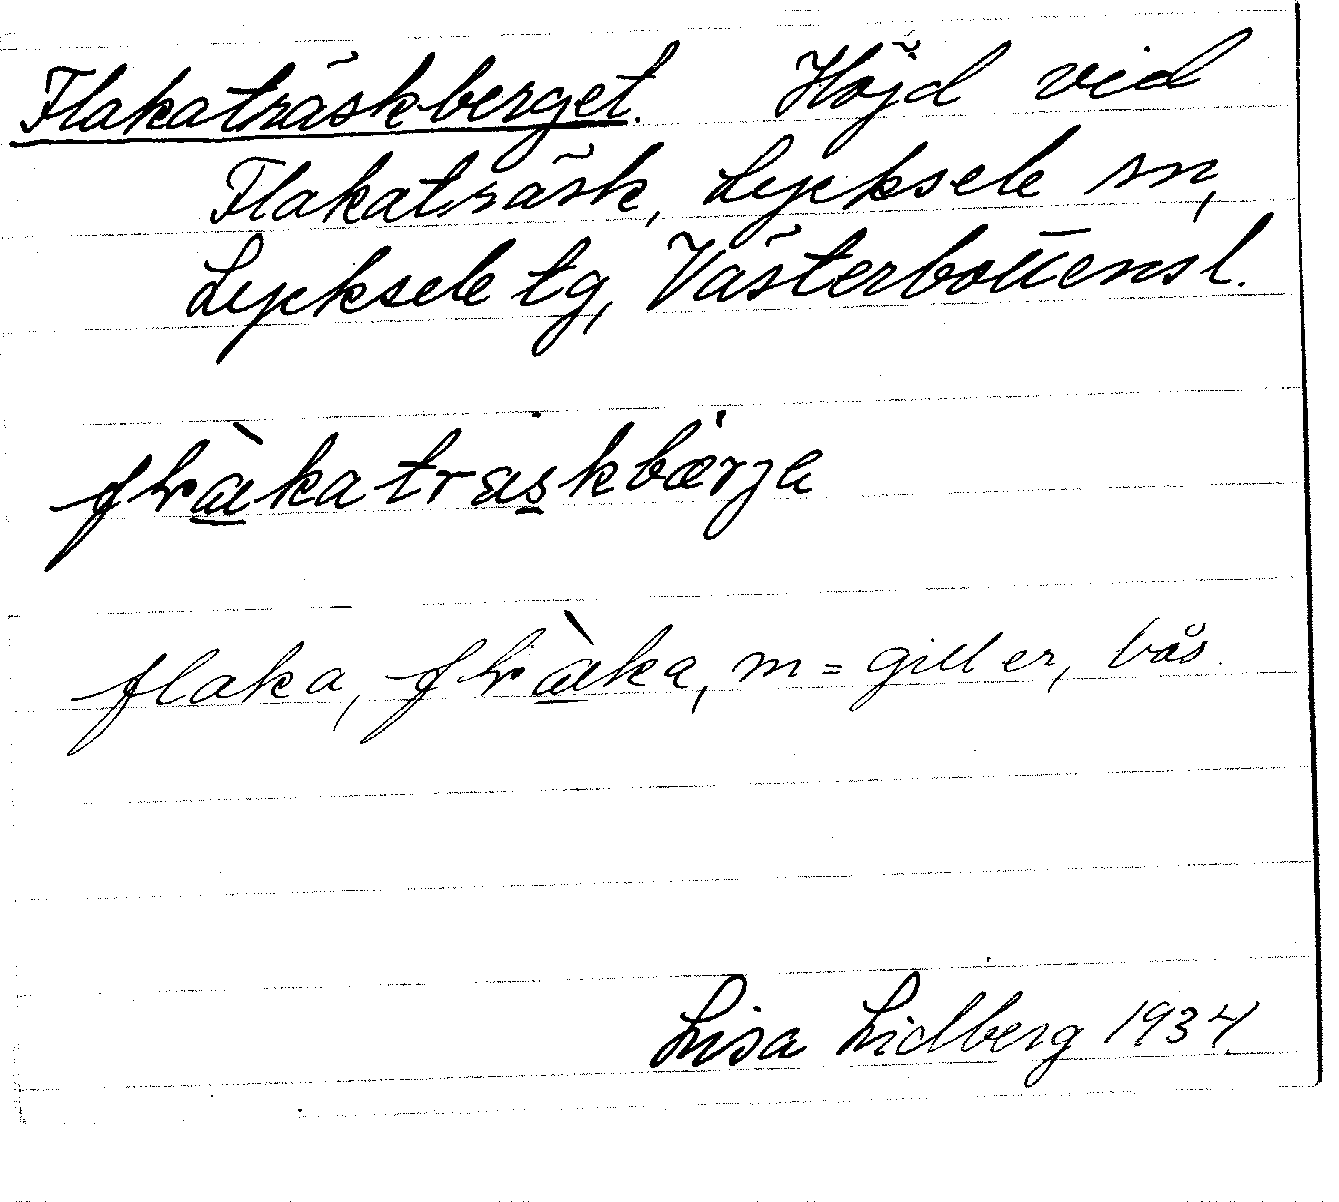 Flakaträskberget. Höjd vid
Flakaträsk, Lycksele sn,
Lycksele tg, Västerbottensl.
flaka, m = giller, bås.
Lisa Lidberg 1934